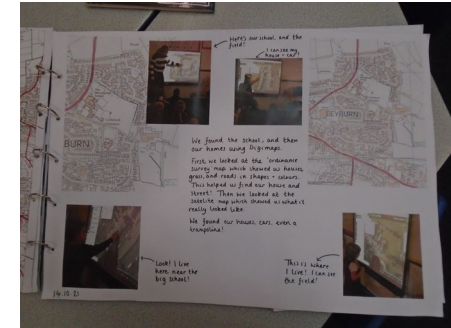 Here's our school and the
field!
I can see my
house + car!
BURN
EYBURN
We found the school, and then
our homes using Digimaps.
First, we looked at the 'ordinance
survey' map which showed us houses,
grass, and roads in shapes + colours.
This helped us find our house and
street! Then we looked at the
satelite map which showed us what it
really looked like.
We found our houses, cars, even a
trampoline!
Look! I live
here near the
big school!
This is where
I live! I can see
the field!
14.10.21